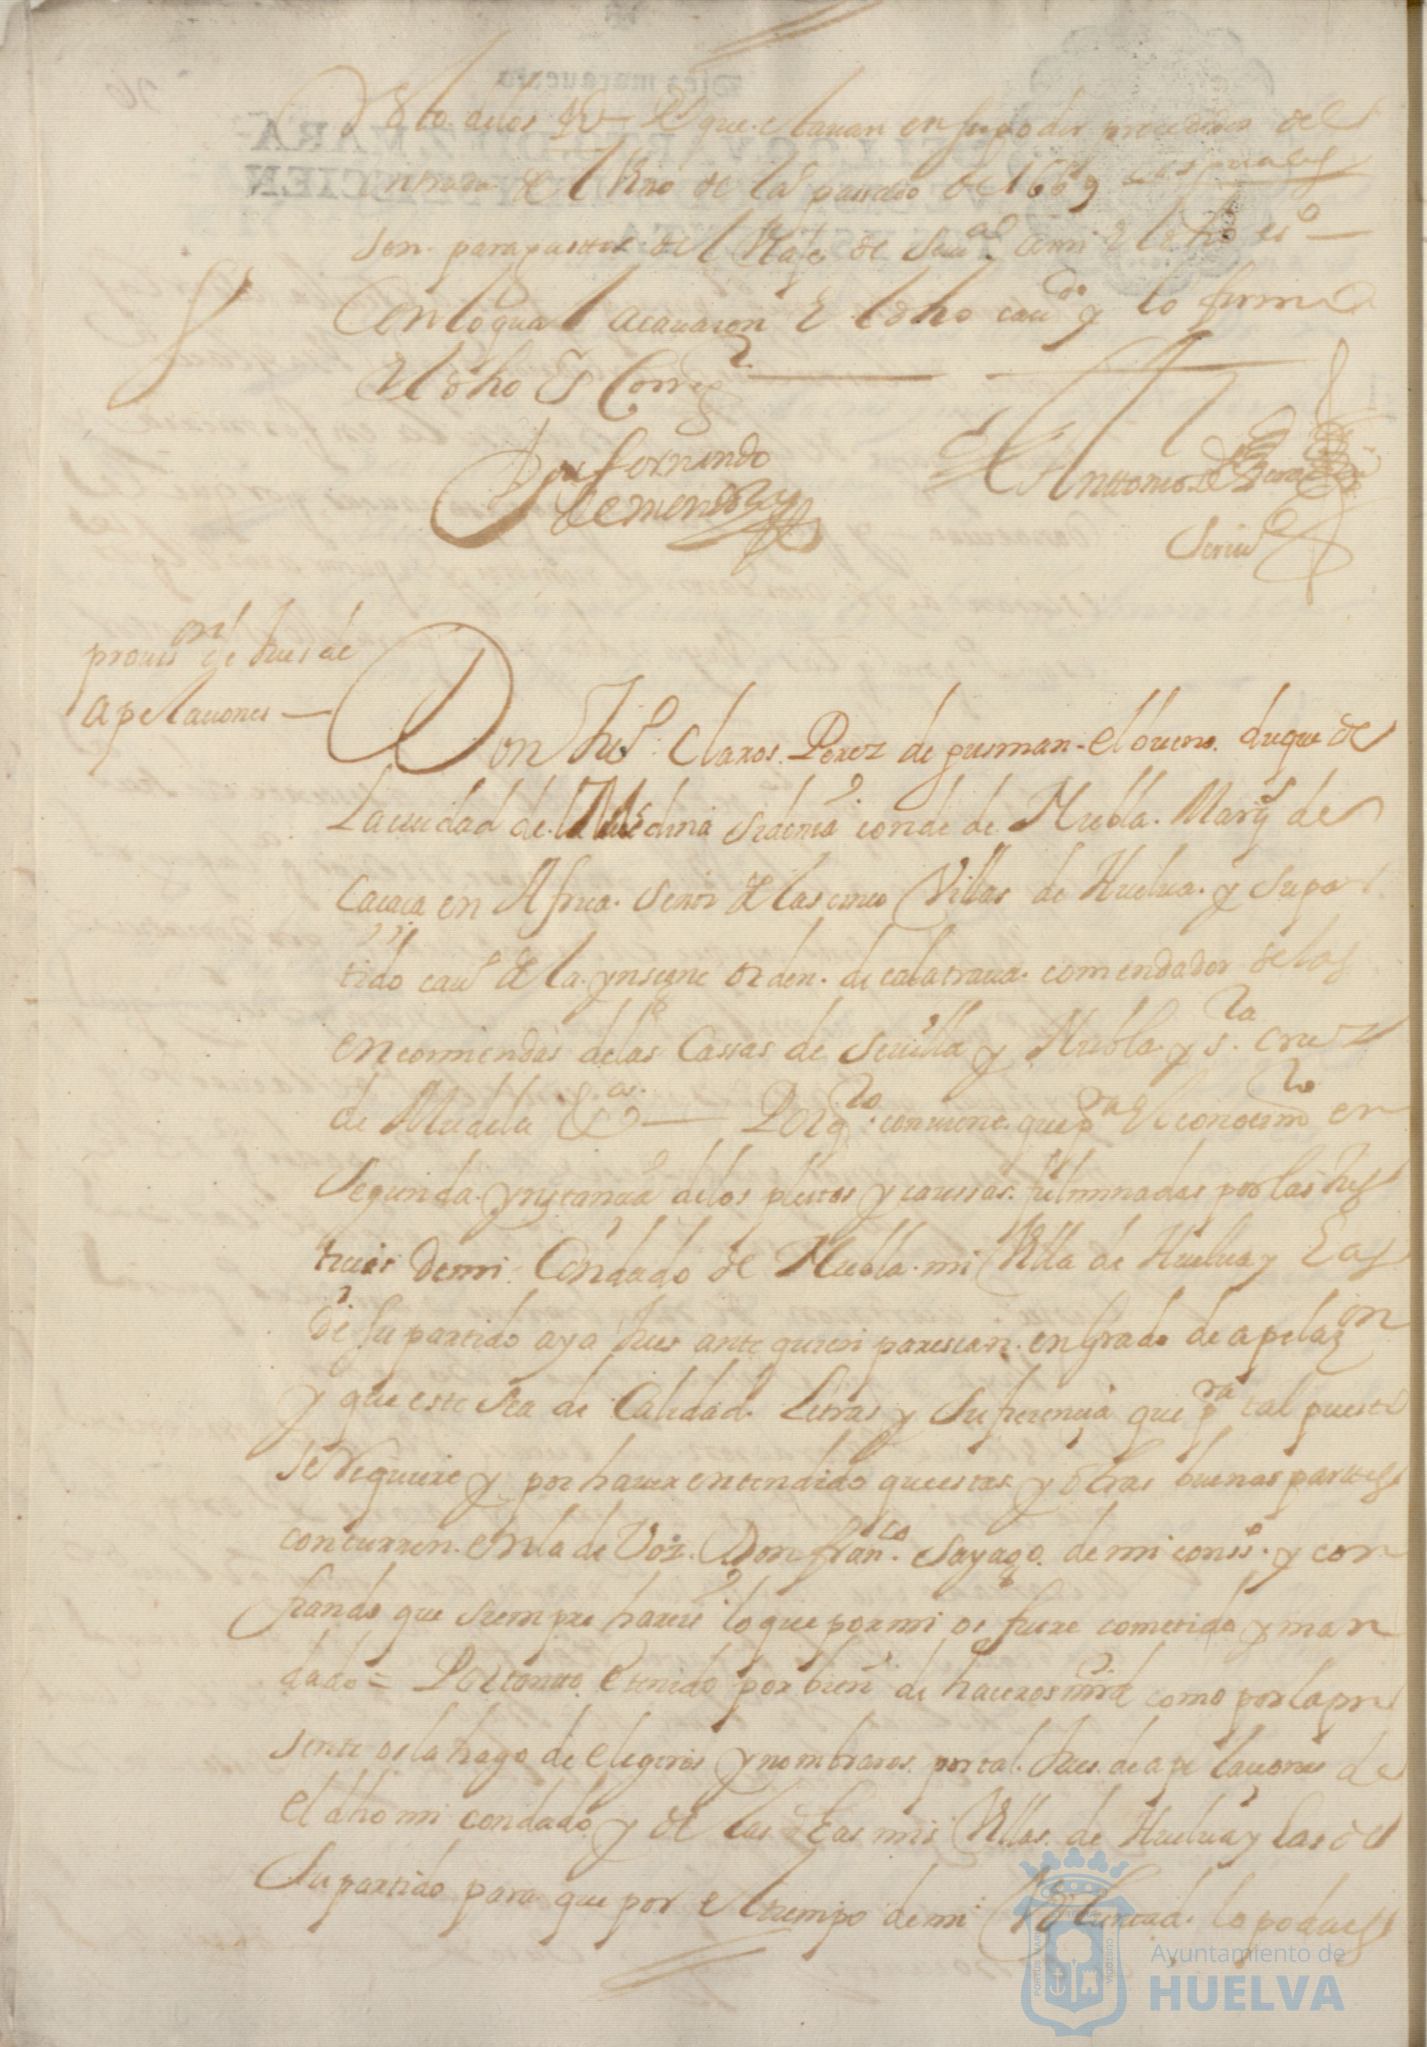 que estauan en su poder prosedidos del
entrada de l de la passado de 1669 los quales
son para gastos de l de a mi el dho es.no
Con lo qual acauaron el dho caudo y lo firmo
el dho Sr Correg.r
Don fernando
de mendoza
Anttonio de
Scriuo
prouis.on de Jues de
apelaciones
Don Ju.o Claros Perez de gusman el bueno duque de
la ciudad de Medina Sidonia conde de Niebla Marq.s de
Cacaca en Africa Señor de las cinco Villas de Huelua y su par
tido cau.o de la ynsigne orden de calatraua comendador de las
encomiendas de las Cassas de Seuilla y Niebla y s.ta cruz
de Mudela &.as Por q.to conuiene que p.ra el conocim.to en
segunda ynstancia de los pleitos y caussas fulminadas por las Jus
ticias de mi Condado de Niebla mi Villa de Huelua y las
de su partido aya Jues ante quien paresean en grado de apelaz.on
y que este sea de Calidad Letras y suficiencia que p.ra tal puesto
se requiere y por hauer entendido que estas y otras buenas parttes
concurren en la de Vos Don fran.co Sayago de mi cons.o y con
fiando que siempre hareis lo que por mi os fuere cometido y man
dado = Por tanto e tenido por bien de haceros mrd como por la pre
sente os la hago de elegiros y nombraros por tal Jues de apelaciones de
el dho mi condado y de las dhas mis Villas de Huelua y las de
Su partido para que por el tiempo de mi Voluntad lo podais
Ayuntamiento de
HUELVA